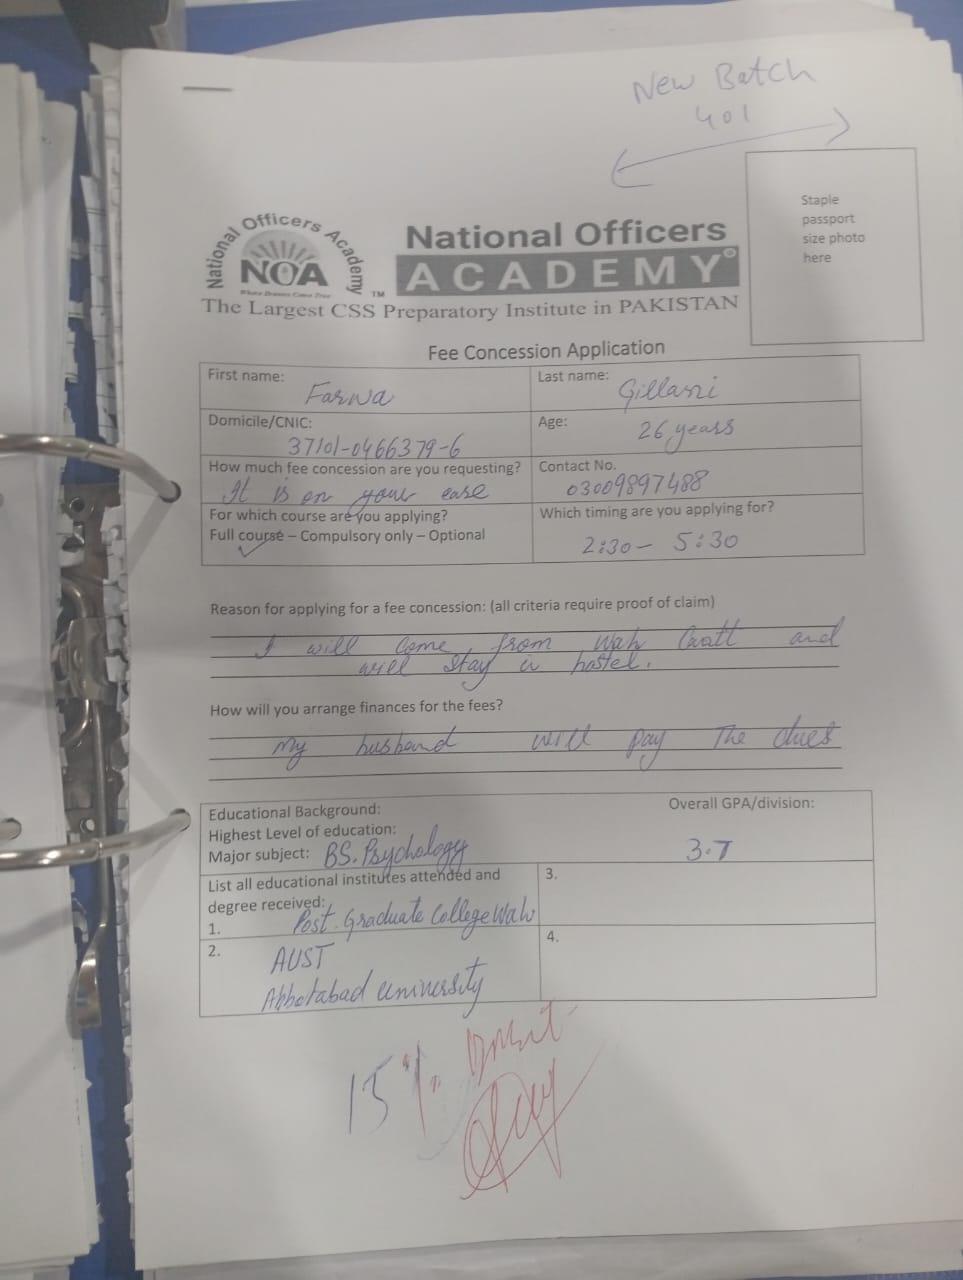 New Batch
401
Staple
passport
size photo
here
National Officers Academy
NOA
Where Dreams Come True
TM
National Officers
ACADEMY®
The Largest CSS Preparatory Institute in PAKISTAN
Fee Concession Application
First name: Farwa
Last name: Gillani
Domicile/CNIC: 37101-0466379-6
Age: 26 years
How much fee concession are you requesting? It is on your ease
Contact No. 03009897488
For which course are you applying?
Full course – Compulsory only – Optional
Which timing are you applying for? 2:30 – 5:30
Reason for applying for a fee concession: (all criteria require proof of claim)
I will come from Wah Cantt and
will stay in hostel.
How will you arrange finances for the fees?
My husband will pay the dues
Educational Background:
Overall GPA/division: 3.7
Highest Level of education:
Major subject: BS. Psychology
List all educational institutes attended and
degree received:
1. Post. Graduate College Wah
3.
2. AUST
Abbotabad University
4.
15%